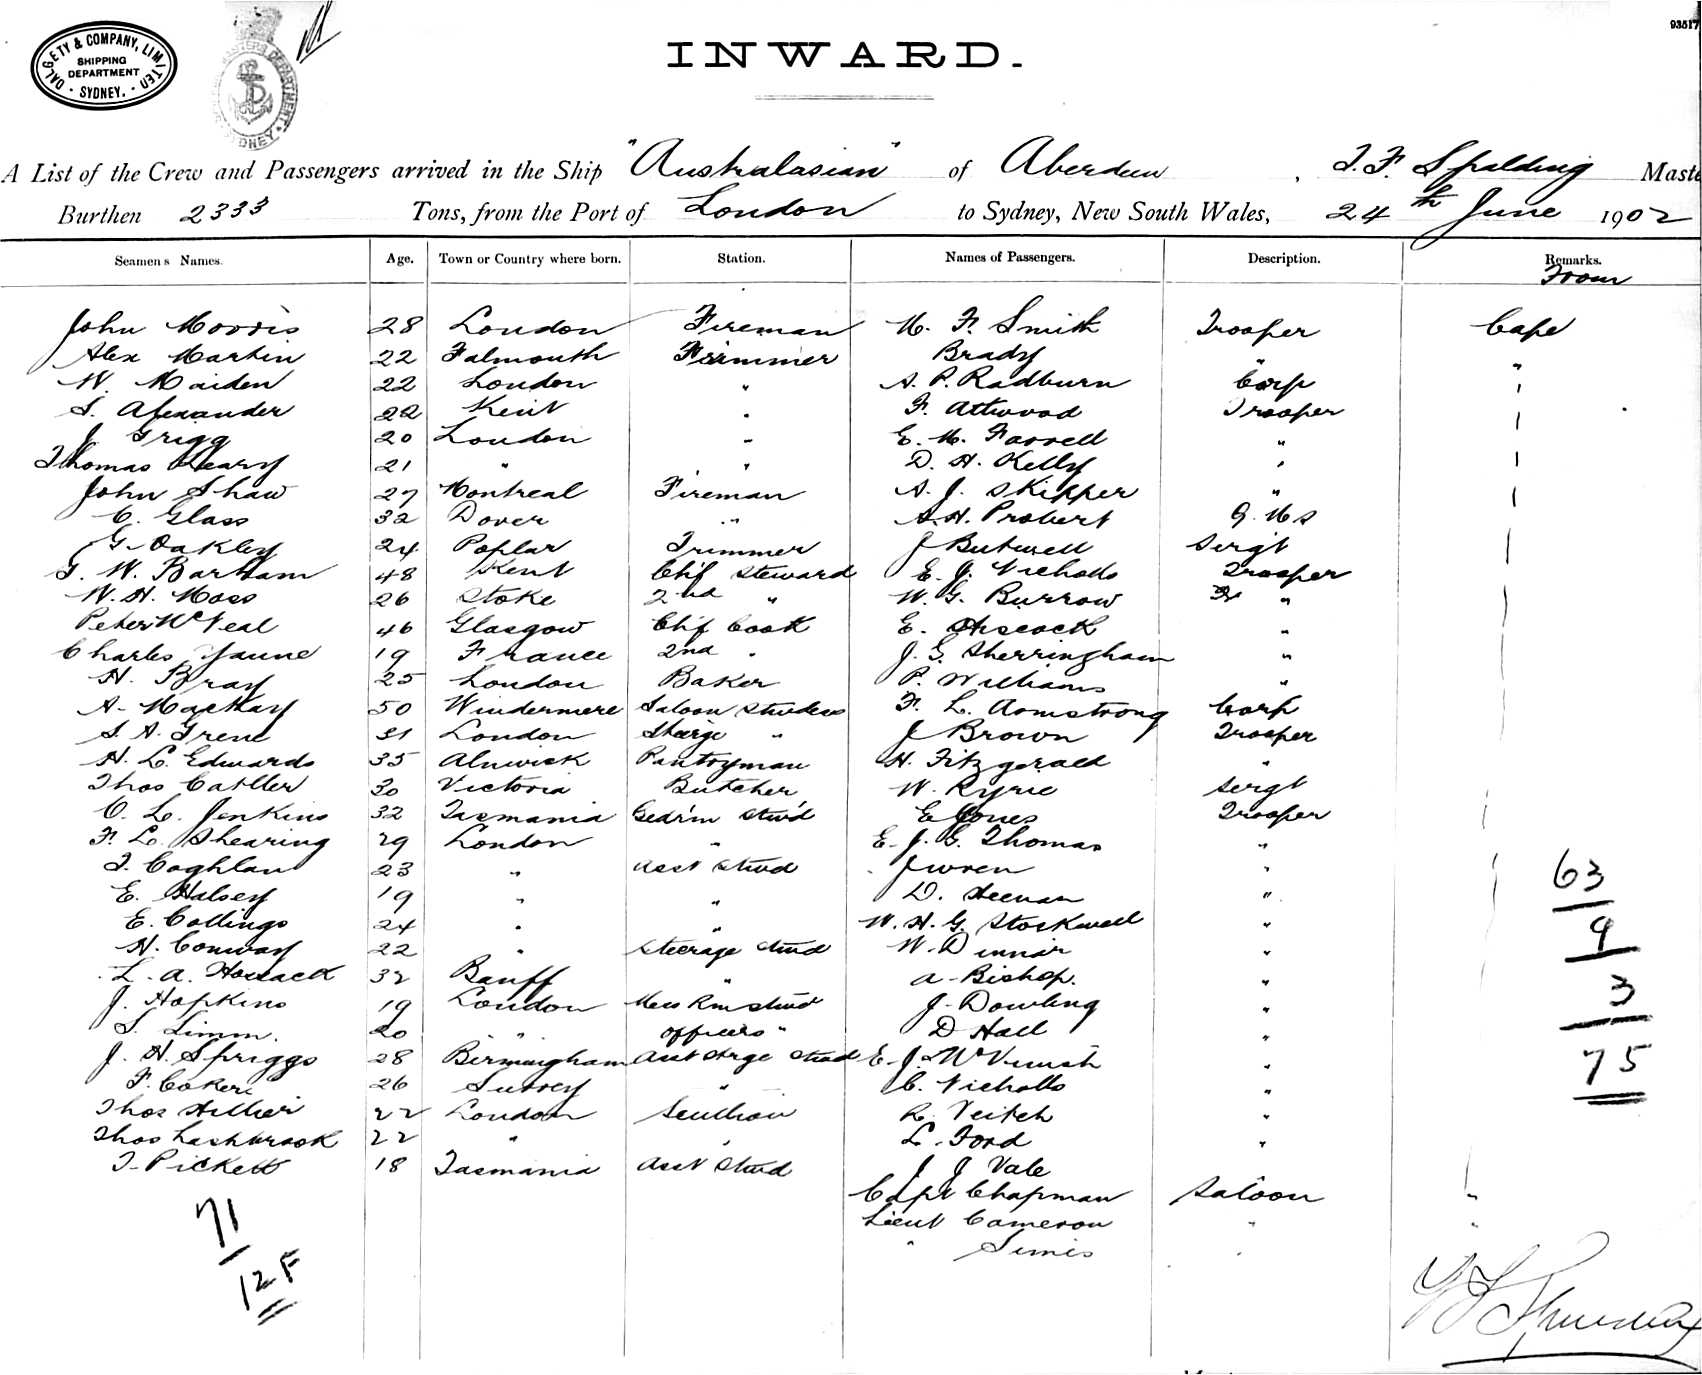 DALGETY & COMPANY, LIMITED
SHIPPING
DEPARTMENT
SYDNEY.
DEPARTMENT
SYDNEY
93517
INWARD.
A List of the Crew and Passengers arrived in the Ship "Australasian" of Aberdeen, T. F. Spalding Maste
Burthen 2333 Tons, from the Port of London to Sydney, New South Wales, 24th June 1902
Seamens Names. Age. Town or Country where born. Station. Names of Passengers. Description. Remarks.
From
John Morris 28 London Fireman M. F. Smith Trooper Cape
Alex Martin 22 Falmouth Brady " "
W. Maiden 22 London " A. P. Radburn Corp
S. Alexander 22 Kent " F. Attwood Trooper
J Grigg 20 London " E. M. Farrell "
Thomas 21 " " D. H. Kelly "
John Shaw 27 Montreal Fireman A. J. Skipper "
C. Glass 32 Dover " A. H. Probert Q. M S
G. Oakley 24 Poplar Trimmer J Butwell Sergt
G. W. Bartram 48 Kent Chf Steward E. J. Nicholls Trooper
W. H. Moss 26 Stoke 2nd " W. G. Burrow "
Peter McNeal 46 Glasgow Chf Cook E. Hiscock "
Charles Jaune 19 France 2nd " J. G. Sherringham "
H. Bray 25 London Baker P. Williams "
A. Mackay 50 Windermere Saloon F. L. Armstrong Corp
S. A. Grene London " J Brown Trooper
H. L. Edwards 35 Alnwick Pantryman H. Fitzgerald "
Thos 30 Victoria Butcher W. Ryrie Sergt
O. L. Jenkins 32 Tasmania Stwd E Jones Trooper
F. L. Shearing 29 London " E. J. G. Thomas "
T. Coghlan 23 " Asst Stwd J Wren "
E. Halsey 19 " " D. Heenan "
E. Collings 24 " " W. H. G. Stockwell "
H. Conway 22 " Steerage Stwd W. "
L. A. 32 Banff " A. Bishop. "
J. Hopkins 19 London Mess Rm Stwd J. Dowling "
S. Limm. 20 " " officers " D Hall "
J. H. Spriggs 28 Birmingham Asst Strge Stwd E. J. "
F. Coker 26 Surrey " C. Nicholls "
Thos Hillier 22 London R. Veitch "
Thos Lashbrook 22 " " L. Ford "
T. Pickett 18 Tasmania Asst Stwd J J Vale
Capt Chapman Saloon "
Lieut Cameron " "
" Simis "
63
9
3
75
71
12 F